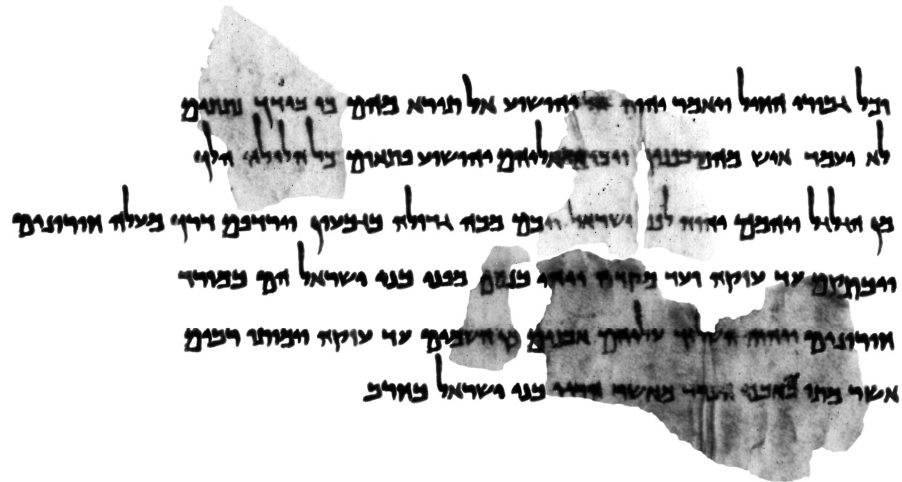 וכל גבורי החיל ויאמר יהוה אל יהושוע אל תירא מהם כי בידך נתתים
לא יעמד איש מהם בפניך ויבוא אליהם יהושוע פתאום כל הלילה הלך
מן הגלגל ויהמם יהוה לפני ישראל ויכם מכה גדולה בגבעון וירדפם דרך מעלה חורונים
עד עזקה ועד מקדה ויהי בנסם מפני בני ישראל הם במורד
חורונים ויהוה השליך עליהם אבנים מן השמים עד עזקה וימותו רבים
אשר מתו באבני הברד מאשר הרגו בני ישראל בחרב